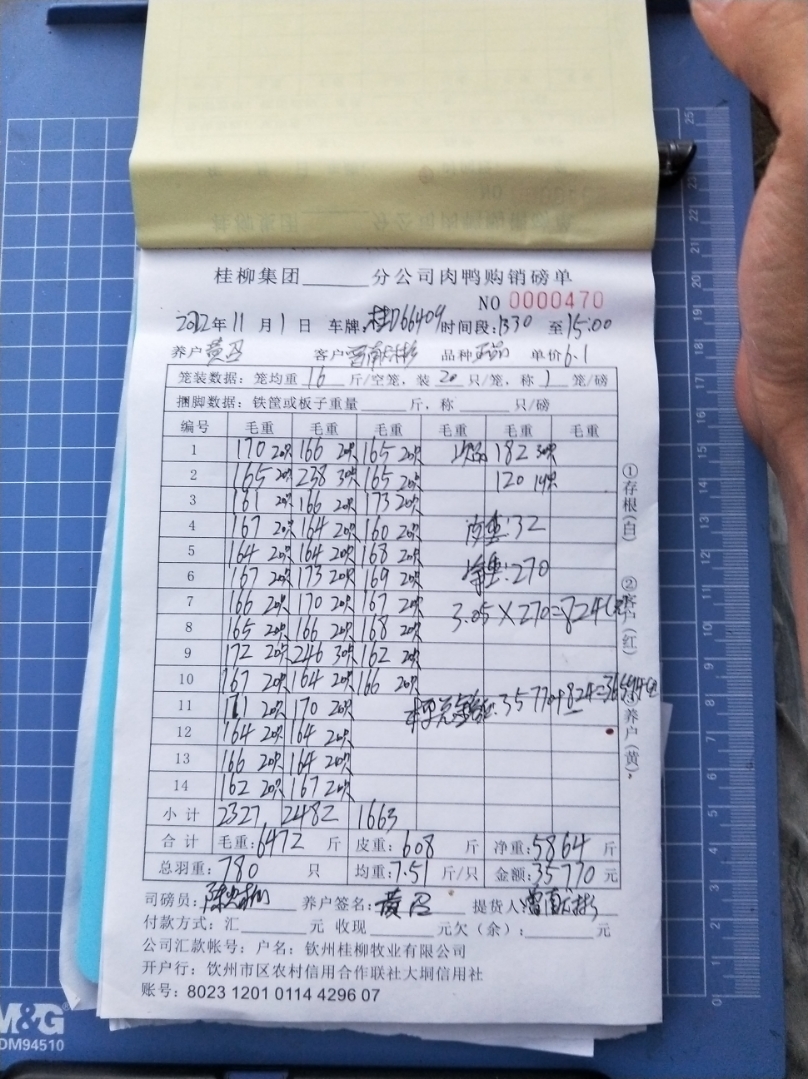 桂柳集团______分公司肉鸭购销磅单
NO 0000470
2022年11月1日 车牌:桂D66409 时间段:1330 至15:00
养户 黄 客户 品种 正品 单价6.1
笼装数据:笼均重 16 斤/空笼,装 20 只/笼,称 1 笼/磅
捆脚数据:铁筐或板子重量______斤,称______只/磅
编号 毛重 毛重 毛重 毛重 毛重 毛重
1 170 20只 166 20只 165 20只 次品 182 30只
2 165 20只 238 30只 165 20只 120 14只
3 161 20只 166 20只 173 20只
4 167 20只 164 20只 160 20只 皮重:32
5 164 20只 164 20只 168 20只
6 167 20只 173 20只 169 20只 净重:270
7 166 20只 170 20只 167 20只 3.05×270=824元
8 165 20只 166 20只 168 20只
9 172 20只 246 30只 162 20只
10 167 20只 164 20只 166 20只
11 171 20只 170 20只 35770+824=36594元
12 164 20只 164 20只
13 166 20只 164 20只
14 162 20只 167 20只
小计 2327 2482 1663
合计 毛重:6472 斤 皮重:608 斤 净重:5864 斤
总羽重:780 只 均重:7.51 斤/只 金额:35770 元
司磅员: 养户签名:黄 提货人:
付款方式:汇______元 收现______元欠(余):______元
公司汇款帐号:户名:钦州桂柳牧业有限公司
开户行:钦州市区农村信用合作联社大垌信用社
账号:8023 1201 0114 4296 07
①存根(白) ②客户(红) ③养户(黄)
M&G
DM94510